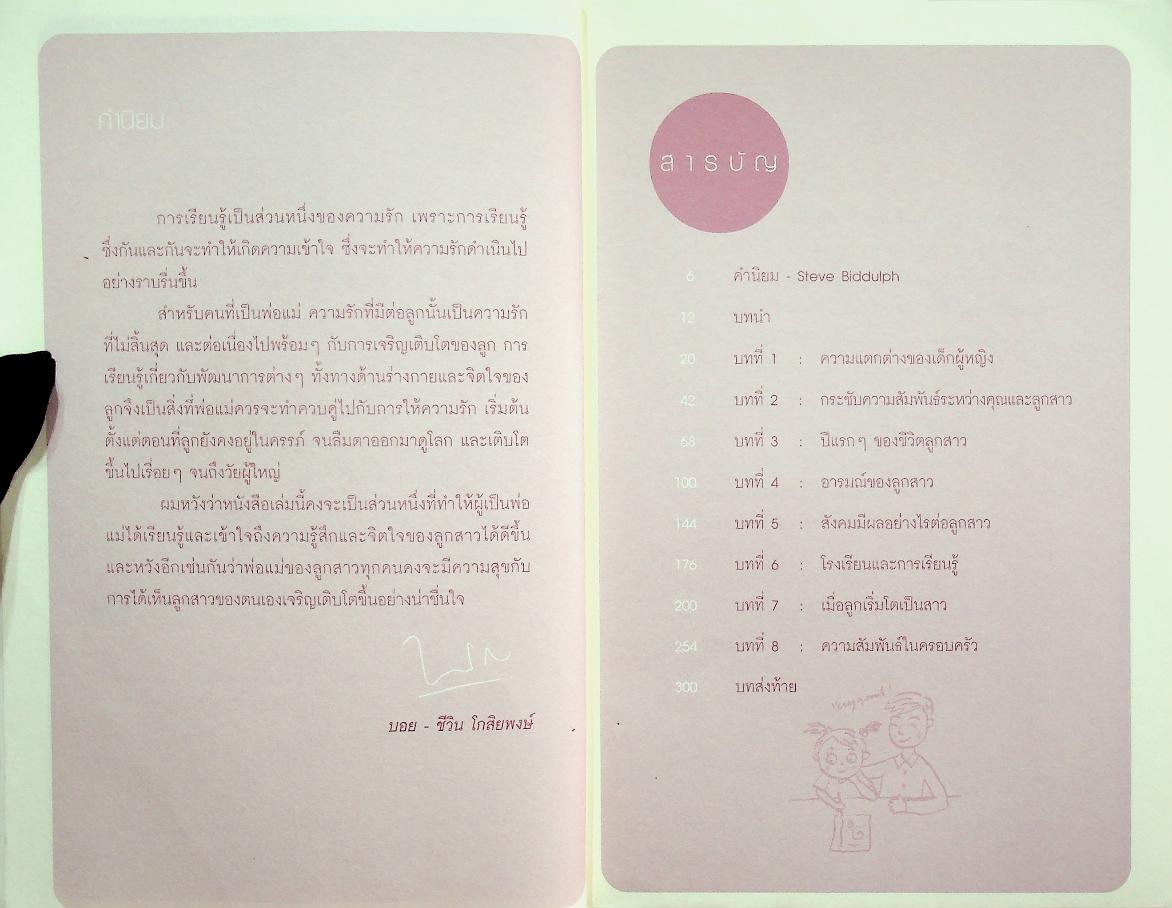 คำนิยม
การเรียนรู้เป็นส่วนหนึ่งของความรัก เพราะการเรียนรู้
ซึ่งกันและกันจะทำให้เกิดความเข้าใจ ซึ่งจะทำให้ความรักดำเนินไป
อย่างราบรื่นขึ้น
สำหรับคนที่เป็นพ่อแม่ ความรักที่มีต่อลูกนั้นเป็นความรัก
ที่ไม่สิ้นสุด และต่อเนื่องไปพร้อมๆ กับการเจริญเติบโตของลูก การ
เรียนรู้เกี่ยวกับพัฒนาการต่างๆ ทั้งทางด้านร่างกายและจิตใจของ
ลูกจึงเป็นสิ่งที่พ่อแม่ควรจะทำควบคู่ไปกับการให้ความรัก เริ่มต้น
ตั้งแต่ตอนที่ลูกยังคงอยู่ในครรภ์ จนลืมตาออกมาดูโลก และเติบโต
ขึ้นไปเรื่อยๆ จนถึงวัยผู้ใหญ่
ผมหวังว่าหนังสือเล่มนี้คงจะเป็นส่วนหนึ่งที่ทำให้ผู้เป็นพ่อ
แม่ได้เรียนรู้และเข้าใจถึงความรู้สึกและจิตใจของลูกสาวได้ดีขึ้น
และหวังอีกเช่นกันว่าพ่อแม่ของลูกสาวทุกคนคงจะมีความสุขกับ
การได้เห็นลูกสาวของตนเองเจริญเติบโตขึ้นอย่างน่าชื่นใจ
บอย - ชีวิน โกสิยพงษ์
สารบัญ
6 คำนิยม - Steve Biddulph
12 บทนำ
20 บทที่ 1 : ความแตกต่างของเด็กผู้หญิง
42 บทที่ 2 : กระชับความสัมพันธ์ระหว่างคุณและลูกสาว
68 บทที่ 3 : ปีแรกๆ ของชีวิตลูกสาว
100 บทที่ 4 : อารมณ์ของลูกสาว
144 บทที่ 5 : สังคมมีผลอย่างไรต่อลูกสาว
176 บทที่ 6 : โรงเรียนและการเรียนรู้
200 บทที่ 7 : เมื่อลูกเริ่มโตเป็นสาว
254 บทที่ 8 : ความสัมพันธ์ในครอบครัว
300 บทส่งท้าย
Very good!